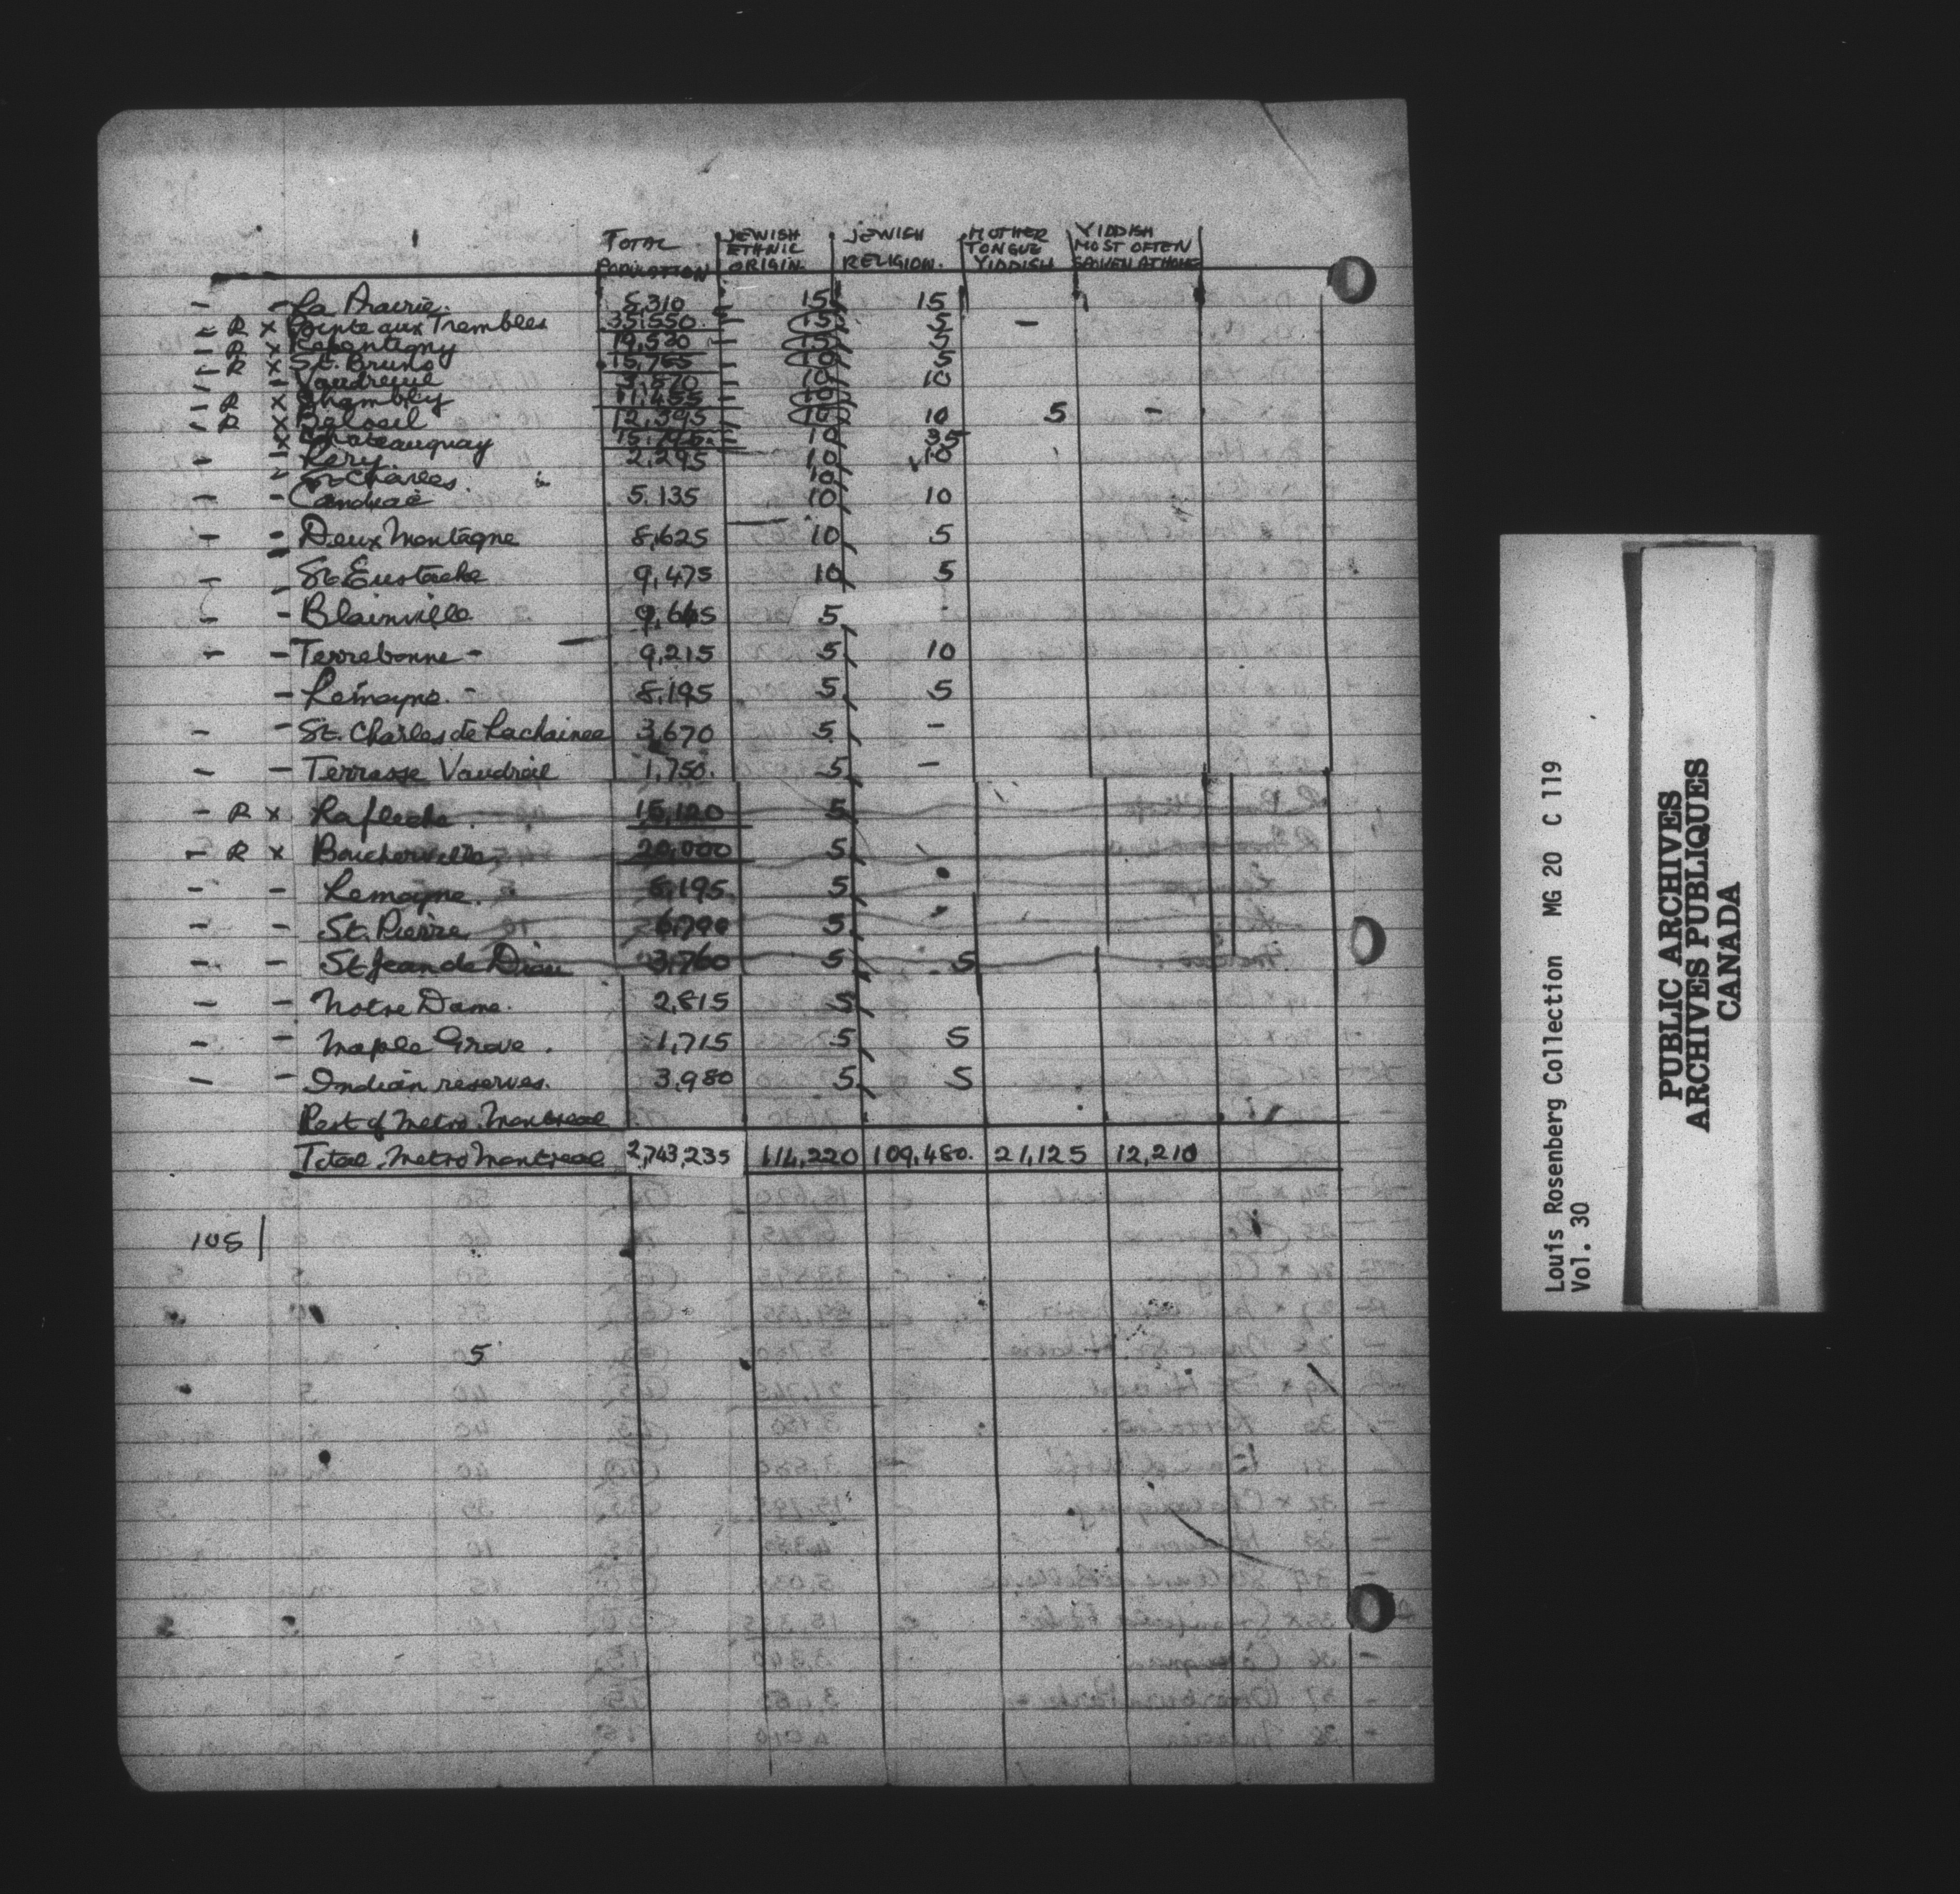 TOTAL POPULATION | JEWISH ETHNIC ORIGIN. | JEWISH RELIGION. | MOTHER TONGUE YIDDISH | YIDDISH MOST OFTEN SPOKEN AT HOME
- - La Prairie. 5,310 - 15 15
- R x Pointe aux Trembles 35,550. - 15 5 -
- R x Repentigny 19,520 - 15 5
- R x St. Bruno 15,765 - 10 5
- - Vaudreuil 3,870 - 10 10
- R x Chambly 11,455 - 10
- R x Beloeil 12,395 - 10 10 5 -
x Chateauguay 10 35
- - Lery. 2,295 10 10
- St Charles. 10
- - Candiac 5,135 10 10
- - Deux Montagne 8,625 10 5
- - St Eustache 9,475 10 5
- - Blainville 9,645 5
- - Terrebonne - 9,215 5 10
- Lemoyne. - 8,195 5 5
- - St. Charles de Lachainee 3,670 5 -
- - Terrasse Vaudreil 1,750. 5 -
- R x Lafleche. 15,120 5
- R x Boucherville 20,000 5
- - Lemoyne. 8,195. 5
- - St. Pierre 6,790 5
- - St Jean de Dieu 3,760 5 5
- - Notre Dame. 2,815 5
- - Maple Grove. 1,715 5 5
- - Indian reserves. 3,980 5 5
Rest of Metro. Montreal
Total. Metro Montreal 2,743,235 114,220 109,480. 21,125 12,210
105
5
Louis Rosenberg Collection MG 20 C 119
Vol. 30
PUBLIC ARCHIVES
ARCHIVES PUBLIQUES
CANADA